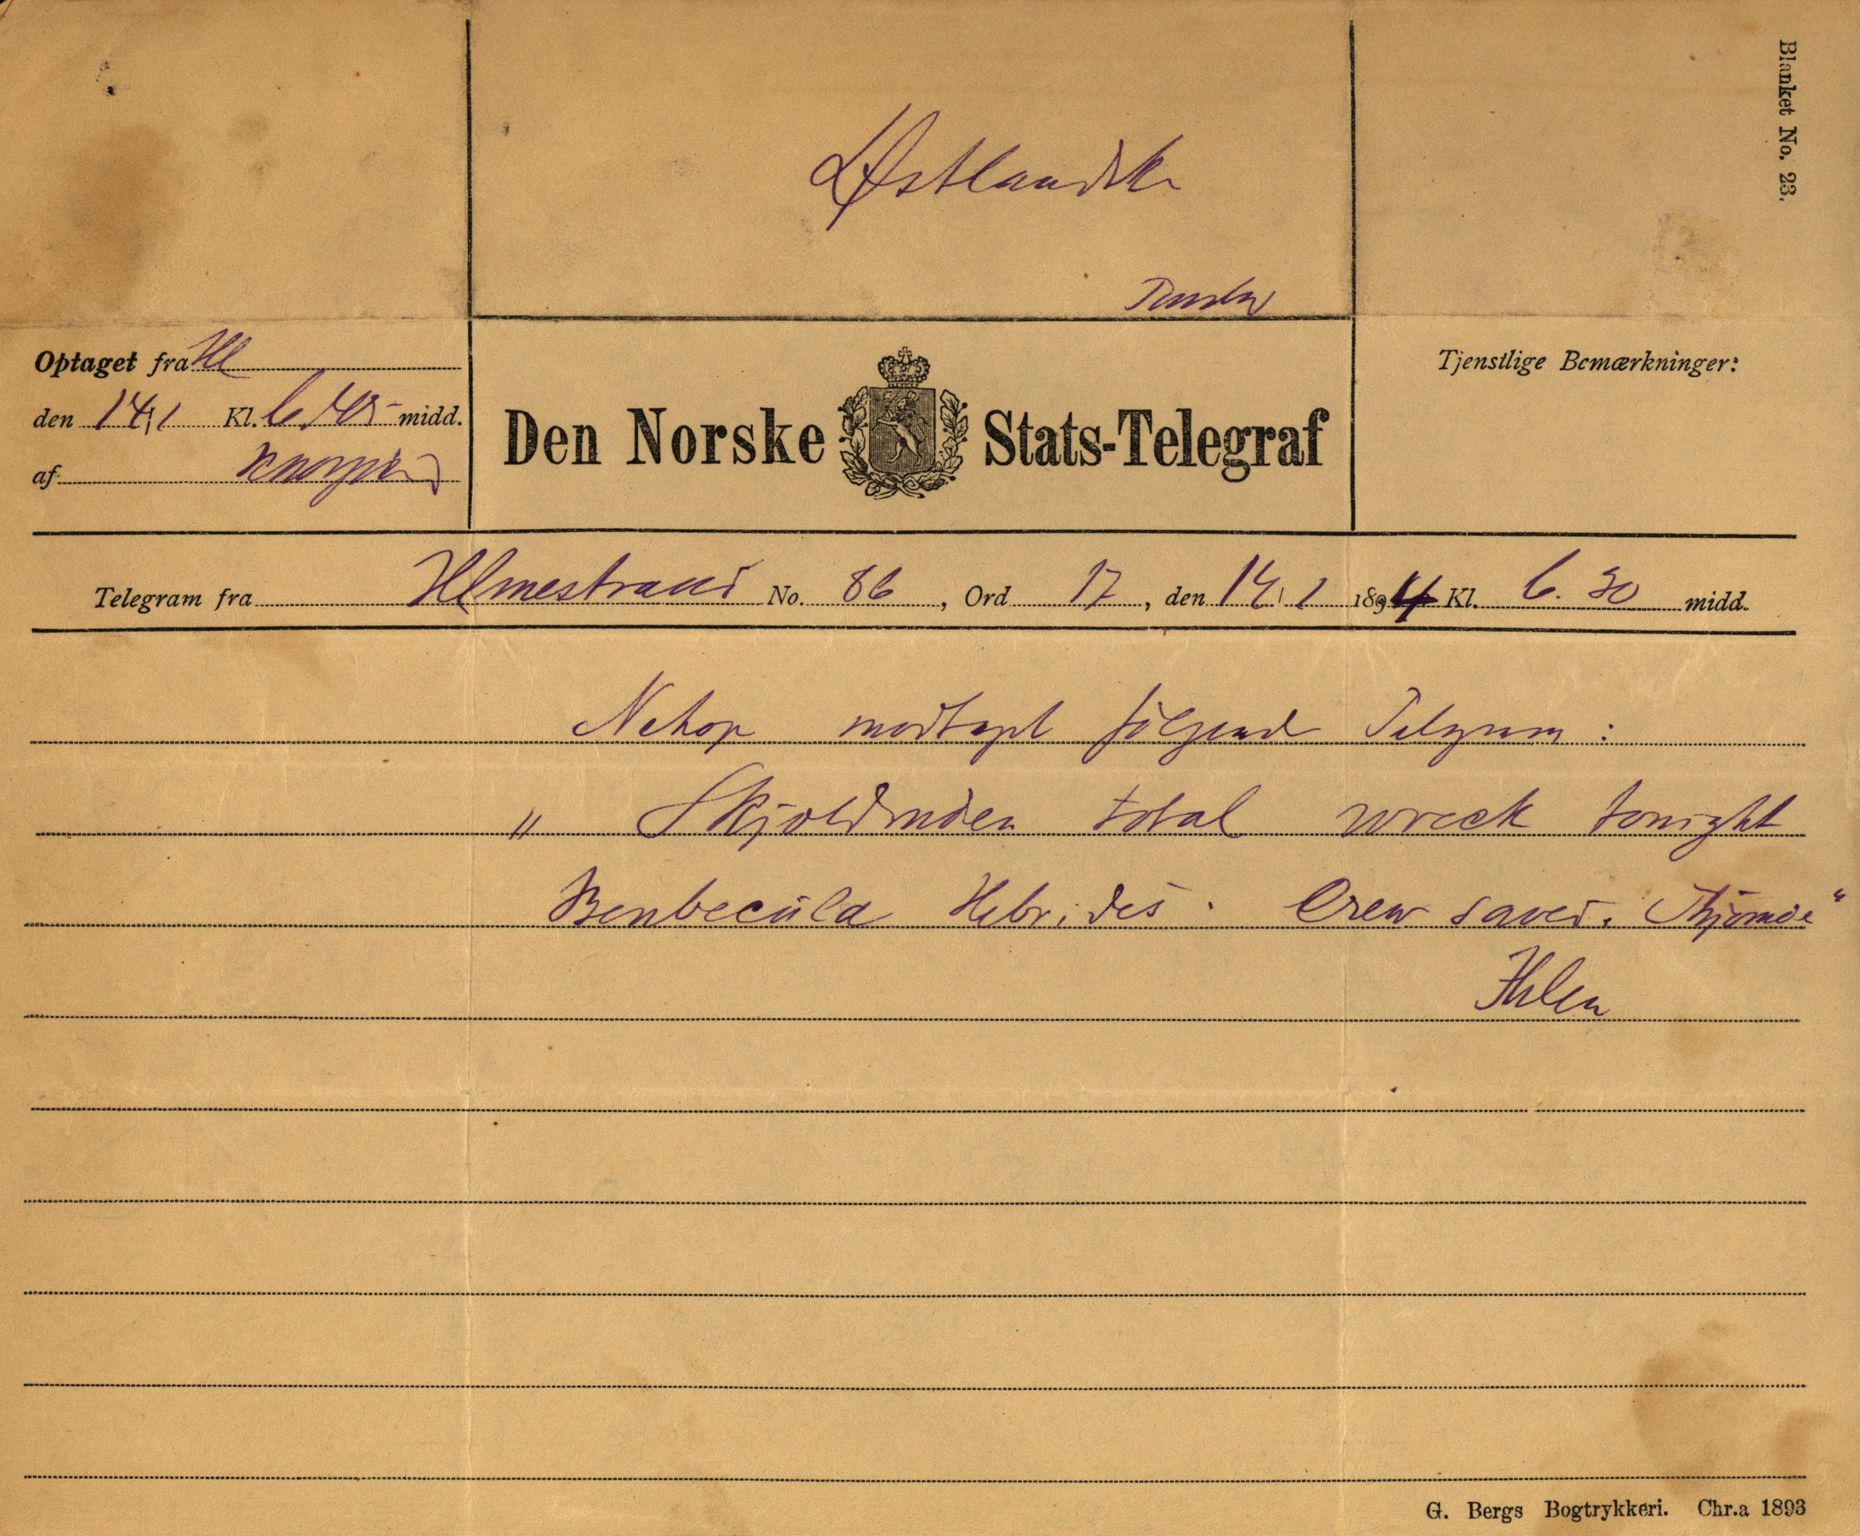 Blanket No. 23.
Østlandske
Optaget fra Hl
den 14/1 Kl. 6.45 midd.
af
Den Norske Stats-Telegraf
Tjenstlige Bemærkninger:
Telegram fra Hlmestrand No. 86, Ord 17, den 14/1 1894 Kl. 6.30 midd.
Netop modtaget følgende Telegram:
" Skjoldmøen total wreck tonight
Benbecula Hebrides. Crew saved. Thjømøe"
Ihlen
G. Bergs Bogtrykkeri. Chr.a 1893